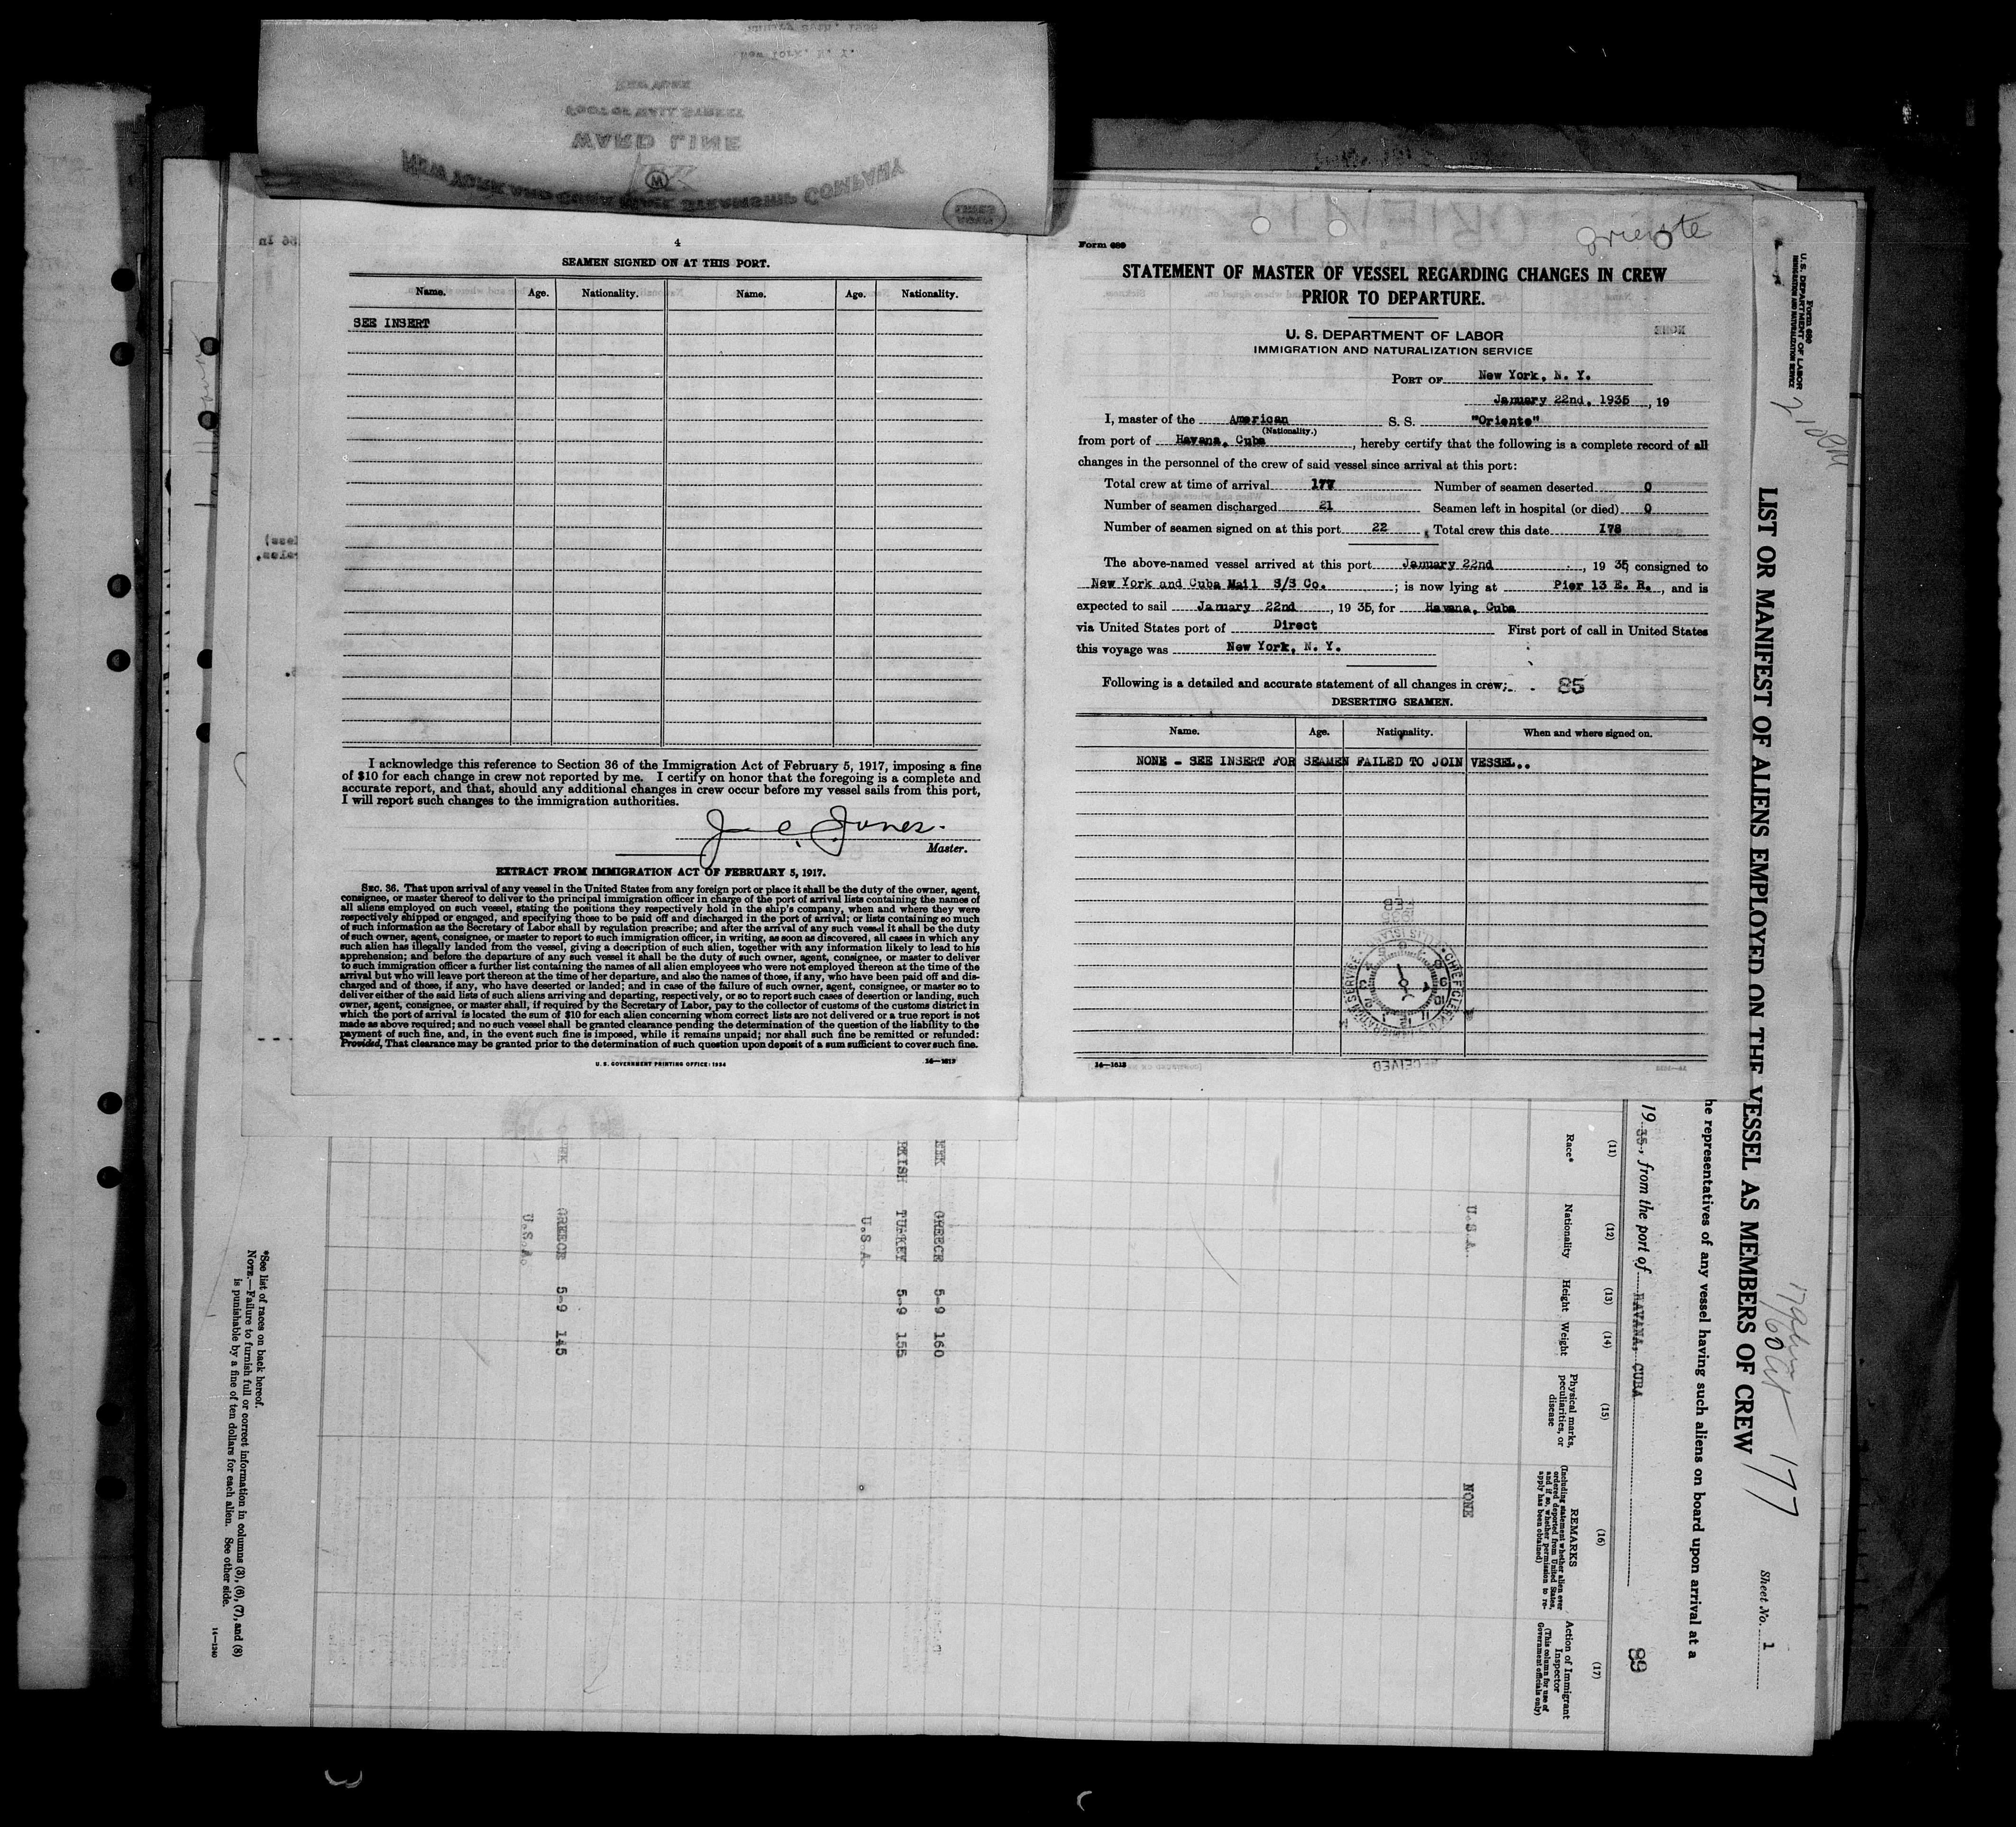 NEW YORK AND CUBA MAIL STEAMSHIP COMPANY
WARD LINE
FOOT OF WALL STREET
NEW YORK
New York, N. Y.
4
SEAMEN SIGNED ON AT THIS PORT.
Name. Age. Nationality. Name. Age. Nationality.
SEE INSERT
I acknowledge this reference to Section 36 of the Immigration Act of February 5, 1917, imposing a fine
of $10 for each change in crew not reported by me. I certify on honor that the foregoing is a complete and
accurate report, and that, should any additional changes in crew occur before my vessel sails from this port,
I will report such changes to the immigration authorities.
J. C. Jones.
Master.
EXTRACT FROM IMMIGRATION ACT OF FEBRUARY 5, 1917.
SEC. 36. That upon arrival of any vessel in the United States from any foreign port or place it shall be the duty of the owner, agent,
consignee, or master thereof to deliver to the principal immigration officer in charge of the port of arrival lists containing the names of
all aliens employed on such vessel, stating the positions they respectively hold in the ship's company, when and where they were
respectively shipped or engaged, and specifying those to be paid off and discharged in the port of arrival; or lists containing so much
of such information as the Secretary of Labor shall by regulation prescribe; and after the arrival of any such vessel it shall be the duty
of such owner, agent, consignee, or master to report to such immigration officer, in writing, as soon as discovered, all cases in which any
such alien has illegally landed from the vessel, giving a description of such alien, together with any information likely to lead to his
apprehension; and before the departure of any such vessel it shall be the duty of such owner, agent, consignee, or master to deliver
to such immigration officer a further list containing the names of all alien employees who were not employed thereon at the time of the
arrival but who will leave port thereon at the time of her departure, and also the names of those, if any, who have been paid off and dis-
charged and of those, if any, who have deserted or landed; and in case of the failure of such owner, agent, consignee, or master so to
deliver either of the said lists of such aliens arriving and departing, respectively, or so to report such cases of desertion or landing, such
owner, agent, consignee, or master shall, if required by the Secretary of Labor, pay to the collector of customs of the customs district in
which the port of arrival is located the sum of $10 for each alien concerning whom correct lists are not delivered or a true report is not
made as above required; and no such vessel shall be granted clearance pending the determination of the question of the liability to the
payment of such fine, and, in the event such fine is imposed, while it remains unpaid; nor shall such fine be remitted or refunded:
Provided, That clearance may be granted prior to the determination of such question upon deposit of a sum sufficient to cover such fine.
U. S. GOVERNMENT PRINTING OFFICE: 1934 14—1613
Oriente
Form 689
STATEMENT OF MASTER OF VESSEL REGARDING CHANGES IN CREW
PRIOR TO DEPARTURE.
U. S. DEPARTMENT OF LABOR
IMMIGRATION AND NATURALIZATION SERVICE
PORT OF New York, N. Y.
January 22nd, 1935, 19
I, master of the American S. S. "Oriente"
(Nationality.)
from port of Havana, Cuba, hereby certify that the following is a complete record of all
changes in the personnel of the crew of said vessel since arrival at this port:
Total crew at time of arrival 177 Number of seamen deserted 0
Number of seamen discharged 21 Seamen left in hospital (or died) 0
Number of seamen signed on at this port 22 Total crew this date 178
The above-named vessel arrived at this port January 22nd, 19 35, consigned to
New York and Cuba Mail S/S Co.; is now lying at Pier 13 E. R., and is
expected to sail January 22nd, 19 35, for Havana, Cuba
via United States port of Direct First port of call in United States
this voyage was New York, N. Y.
Following is a detailed and accurate statement of all changes in crew:
85
DESERTING SEAMEN.
Name. Age. Nationality. When and where signed on.
NONE - SEE INSERT FOR SEAMEN FAILED TO JOIN VESSEL..
RECEIVED
14—1613
Form 689
U. S. DEPARTMENT OF LABOR
IMMIGRATION AND NATURALIZATION SERVICE
LIST OR MANIFEST OF ALIENS EMPLOYED ON THE VESSEL AS MEMBERS OF CREW
177
Sheet No. 1
he representatives of any vessel having such aliens on board upon arrival at a
19 35, from the port of HAVANA, CUBA
89
(11) (12) (13) (14) (15) (16) (17)
Race* Nationality Height Weight Physical marks, peculiarities, or disease
REMARKS
(Including statement whether alien ever ordered deported from United States, and if so, whether permission to re-apply has been obtained)
Action of Immigrant Inspector
(This column for use of Government officials only)
U.S.A. NONE
EEK GREECE 5-9 160
RKISH TURKEY 5-9 155
U.S.A.
EEK GREECE 5-9 145
U.S.A.
*See list of races on back hereof.
NOTE.—Failure to furnish full or correct information in columns (3), (6), (7), and (8)
is punishable by a fine of ten dollars for each alien. See other side.
14—1240